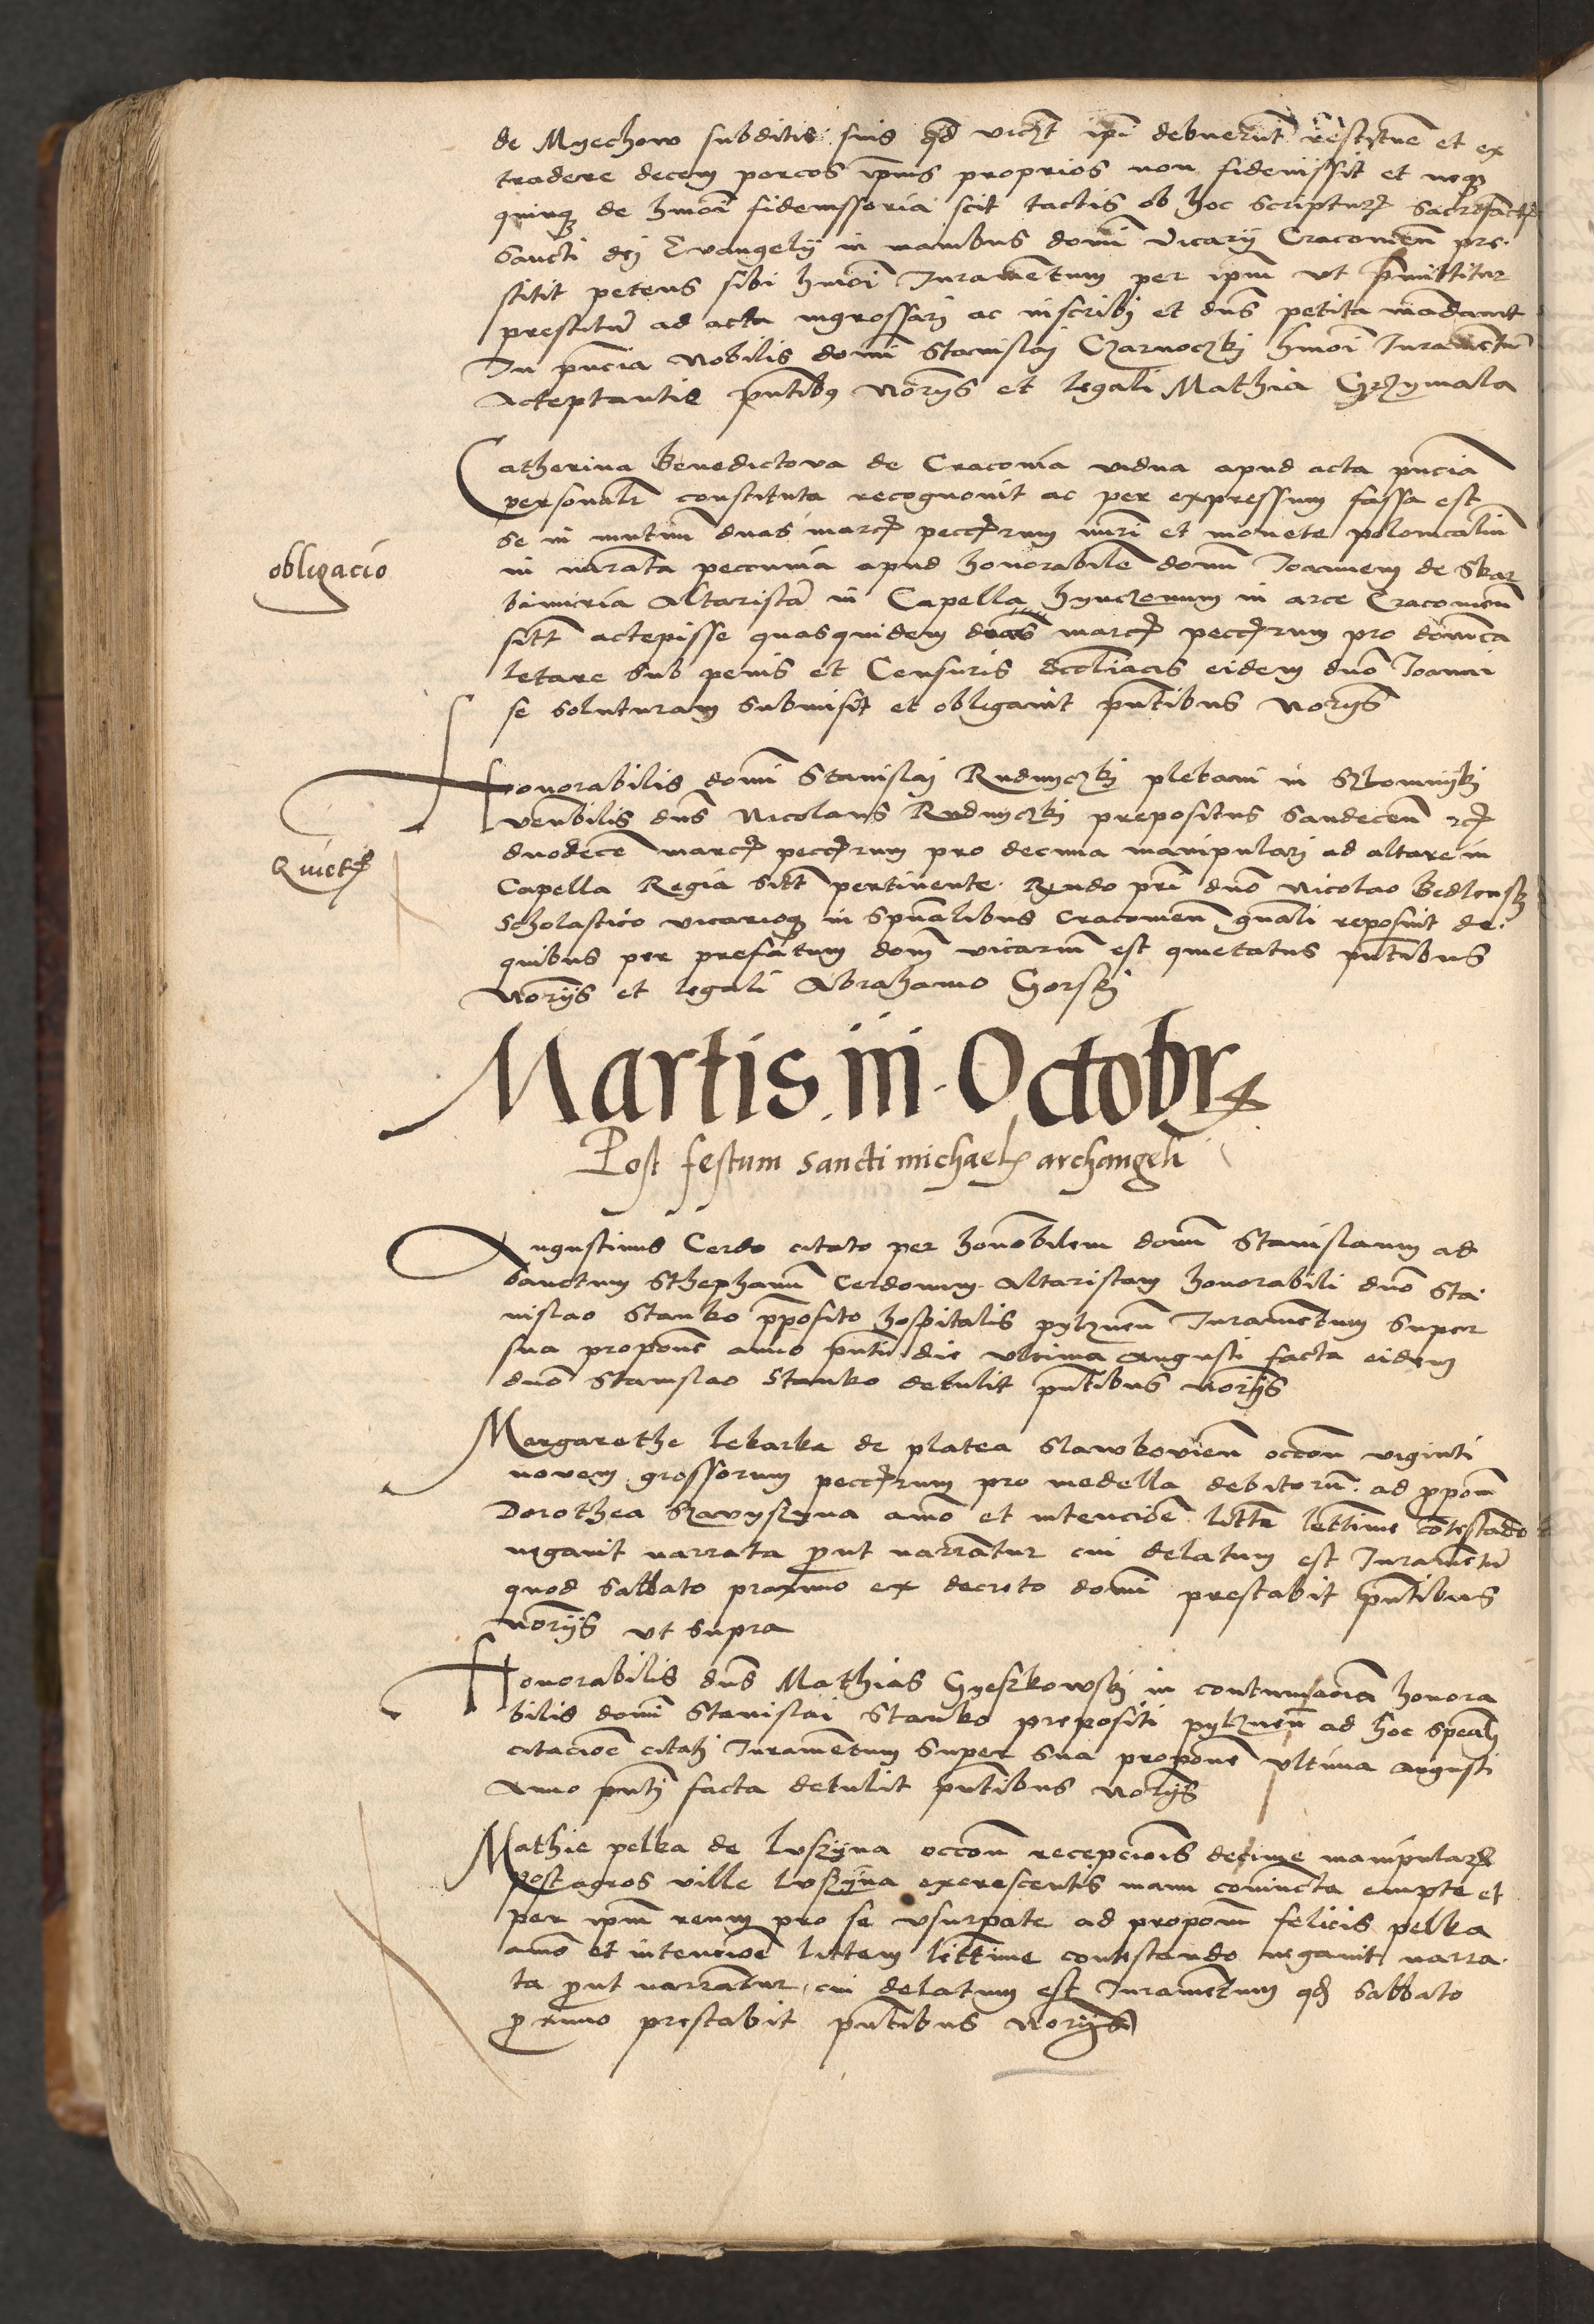 de Myechow subditis suis qd vidlt ipi debuerut restituē et ex
tradere decem porcos ipius proprios non fideiussit et neqz
de hmoi fideiussoria scit tactis ob hoc scripturis sacrosanctis
sancti dej Evangelij in manibus domi vicarij Cracovien pre
stitit petens sibi hmoi Iuramentum per ipm vt pmittitur
prestitū ad acta ingrossarj ac inscribj et dns petita mādavit
In pncia Nobilis domi Stanislaj Czarnoczkj hmoi Iuramentū
acceptantis pntibus Norijs et legali Mathia Grzymala
Catherina Benedictova de Cracovia vidua apud acta pncia
personalr constituta recognovit ac per expressum fassa est
se in mutuū duas marcs peccrum nuri et monete polonicalium
obligacio
in nūrata peccunia apud honorabilē domū Ioannem de Skar
bimiria Altaristā in Capella Hynczonum in arce Cracovien
sitt accepisse quasquidem duas marcs peccrum pro dōnica
letare sub penis et Censuris ecctiacis eidem dno Ioanni
se soluturam submisit et obligavit pntibus Norijs
Honorabilis domi Stanislaj Rudniczkj plebani in Slomnykj
venbilis dns Nicolaus Rudniczkj prepositus Sandecen
duodecē marcs peccrum pro decima manipularj ad altare in
Quiets
Capella Regia sitt pertinente Rndo pri dno Nicolao Bedlenskj
Scholastico vicarioqz in spualibus Cracovien gnali reposuit de
quibus per prefatum dom vicariū est quietatus pntibus
Norijs et legali Abrahamo Gorskj
Martis iii Octobrs
Post festum sancti michaels archangeli
Augustinus Cerdo citato per honobilem domū Stanislaum ad
Sanctum Sthephanū Cerdonum Altaristam honorabili dno Sta
nislao Stanko pposito hospitalis pylznen Iuramentum super
sua propone anno pnti die vltima Augusti facta eidem
dno Stanislao Stanko detulit pntibus Norijs
Margarethe lekarka de platea Slawkovien occon viginti
novem grossorum peccrum pro medella debitorū ad ppom
Dorothea animo et intencioe litt lettime cotestado
negavit narrata put narrantur cui delatum est Iuramentū
quod Sabbato proximo ex decreto domi prestabit pntibus
Norijs vt supra
Honorabilis dns Mathias Gyeszkowskj in contumaciā honora
bilis domi Stanislai Stanko prepositi pylznen ad hoc spealj
citacioe citatj Iuramentum super sua propone vltima augusti
Anno pntj facta detulit pntibus Norijs
Mathie pelka de Luszyna occon recepciois decime manipularis
post agros ville Luszyna excrescentis manu coniuncta empte et
per ipm reum pro se vsurpate ad propom felicis pelka
aīo et intencioe littem littime contestando negavit narra
ta put narrantur cui delatum est Iuramentum qd Sabbato
prximo prestabit pntibus Norijs